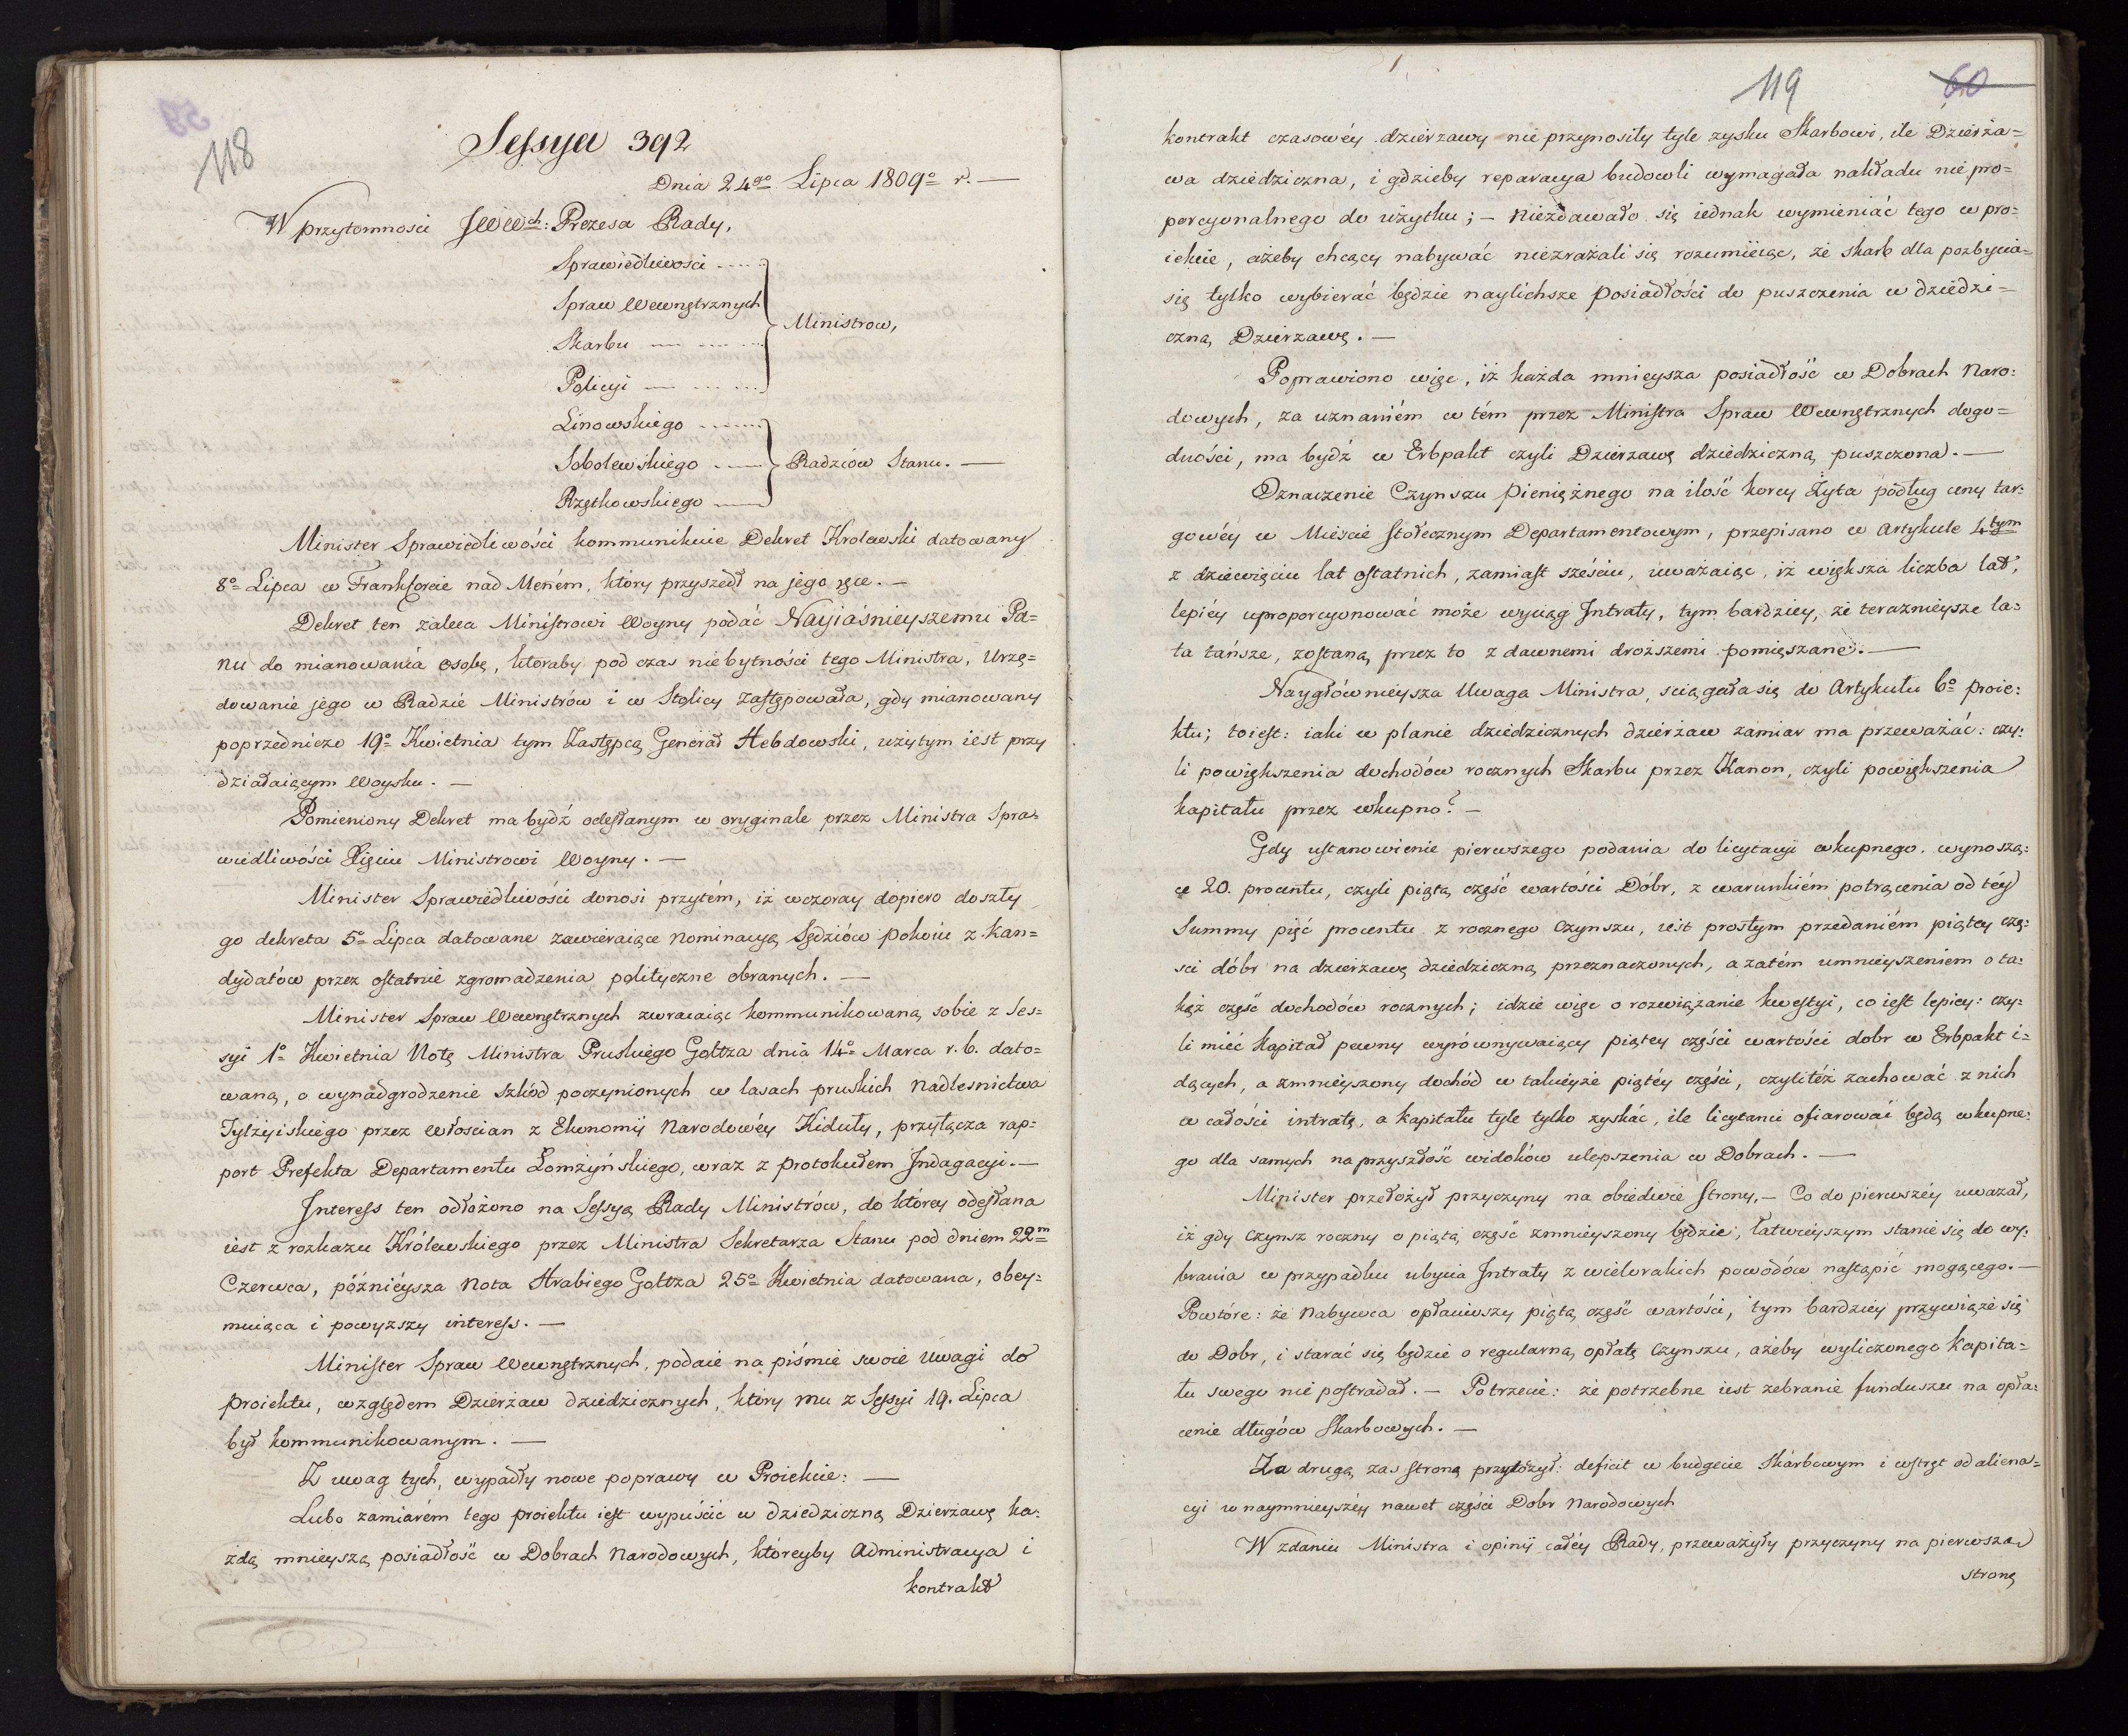 118
Sessya 392
Dnia 24go Lipca 1809o r. —
W przytomności JWWch: Prezesa Rady,
Sprawiedliwości
Spraw Wewnętrznych
Skarbu
Policyi
Ministrow,
Linowskiego
Sobolewskiego
Rzętkowskiego
Radzców Stanu. —
Minister Sprawiedliwości kommunikuie Dekret Krolewski datowany
8o Lipca w Frankforcie nad Menem, który przyszedł na jego ręce. —
Dekret ten zaleca Ministrowi Woyny podać Nayiaśnieyszemu Pa=
nu do mianowania osobę, ktoraby pod czas niebytności tego Ministra, Urzę=
dowanie jego w Radzie Ministrów i w Stolicy zastępowała, gdy mianowany
poprzedniczo 19o Kwietnia tym Zastępcą Generał Hebdowski, użytym iest przy
działaiącym Woysku. —
Pomieniony Dekret ma bydź odesłanym w oryginale przez Ministra Spra=
wiedliwości Xięciu Ministrowi Woyny. —
Minister Sprawiedliwości donosi przytém, iż wczoray dopiero doszły
go dekreta 5o Lipca datowane zawieraiące nominacyą Sędziów pokoiu z kan=
dydatów przez ostatnie zgromadzenia polityczne obranych. —
Minister Spraw Wewnętrznych zwracaiąc kommunikowaną sobie z Ses=
syi 1o Kwietnia Notę Ministra Pruskiego Goltza dnia 14o Marca r. b. dato=
waną, o wynadgrodzenie szkód poczynionych w lasach pruskich Nadlesnictwa
Tylżyiskiego przez włoscian z Ekonomij Narodowéy Kiduły, przyłącza rap=
port Prefekta Departamentu Łomżyńskiego, wraz z protokułem Indagacyi. —
Interess ten odłożono na Sessyą Rady Ministrów, do którey odesłana
iest z rozkazu Królewskiego przez Ministra Sekretarza Stanu pod dniem 22m
Czerwca, późnieysza Nota Hrabiego Goltza 25o Kwietnia datowana, obey=
muiąca i powyższy interess. —
Minister Spraw Wewnętrznych, podaie na piśmie swoie Uwagi do
proiektu, względem Dzierżaw dziedzicznych, który mu z Sessyi 19. Lipca
był kommunikowanym. —
Z uwag tych, wypadły nowe poprawy w Proiekcie: —
Lubo zamiarém tego proiektu iest wypuścić w dziedziczną Dzierzawę ka=
żdą mnieyszą posiadłość w Dobrach Narodowych, któreyby Administracya i
kontrakt
119
60
kontrakt czasowéy dzierzawy nie przynosiły tyle zysku Skarbowi, ile Dzierża=
wa dziedziczna, i gdzieby reparacya budowli wymagała nakładu nie pro=
porcyonalnego do użytku; — niezdawało się iednak wymieniać tego w pro=
iekcie, ażeby chcący nabywać niezrażali się rozumieiąc, że skarb dla pozbycia=
się tylko wybierać będzie naylichsze posiadłości do puszczenia w dziedzi=
czną Dzierzawę. —
Poprawiono więc, iż każda mnieysza posiadłość w Dobrach Naro=
dowych, za uznaniém w tém przez Ministra Spraw Wewnętrznych dogo=
dności, ma bydź w Erbpakt czyli Dzierzawę dziedziczną puszczona. —
Oznaczenie Czynszu pieniężnego na ilość korcy Żyta podług ceny tar=
gowéy w Mieście Stołecznym Departamentowym, przepisano w Artykule 4tym
z dziewięciu lat ostatnich, zamiast sześciu, uważaiąc, iż większa liczba lat,
lepiéy uproporcyonować może wyciąg Intraty, tym bardziey, że teraznieysze la=
ta tańsze, zostaną przez to z dawnemi droższemi pomięszane. —
Naygłównieysza Uwaga Ministra, sciągała się do Artykułu 6o proie=
ktu; toiest: iaki w planie dziedzicznych dzierżaw zamiar ma przeważać: czy=
li powiększenia dochodów rocznych Skarbu przez Kanon, czyli powiększenia
kapitału przez wkupno? —
Gdy ustanowienie pierwszego podania do licytacyi wkupnego, wynoszą=
ce 20. procentu, czyli piątą część wartości Dóbr, z warunkiém potrącenia od téy
Summy pięć procentu z rocznego czynszu, iest prostym przedaniém piątey czę=
sci dóbr na dzierzawę dziedziczną przeznaczonych, a zatém umnieyszeniem o ta=
kąż część dochodów rocznych; idzie więc o rozwiązanie kwestyi, co iest lepiey: czy=
li mieć Kapitał pewny wyrównywaiący piątey części wartości dobr w Erbpakt i=
dących, a zmnieyszony dochód w takieyże piątéy części, czyliteż zachować z nich
w całości intratę, a kapitału tyle tylko zyskać, ile licytanci ofiarować będą wkupne=
go dla samych na przyszłość widoków ulepszenia w Dobrach. —
Minister przełożył przyczyny na obiedwie strony, — Co do pierwszéy uważał,
iż gdy czynsz roczny o piątą część zmnieyszony będzie, łatwieyszym stanie się do wy=
brania w przypadku ubycia Intraty z wielorakich powodów nastąpić mogącego. —
Powtóre: że Nabywca opłaciwszy piątą część wartości, tym bardziey przywiąże się
do Dobr, i starać się będzie o regularną opłatę czynszu, ażeby wyliczonego kapita=
łu swego nie postradał. — Potrzecie: że potrzebne iest zebranie funduszu na opła=
cenie długów Skarbowych. —
Za drugą zas stroną przyłożył: deficit w budgecie Skarbowym i wstręt od aliena=
cyi w naymnieyszéy nawet części Dobr Narodowych
W zdaniu Ministra i opinij całéy Rady, przeważyły przyczyny na pierwszą
stronę